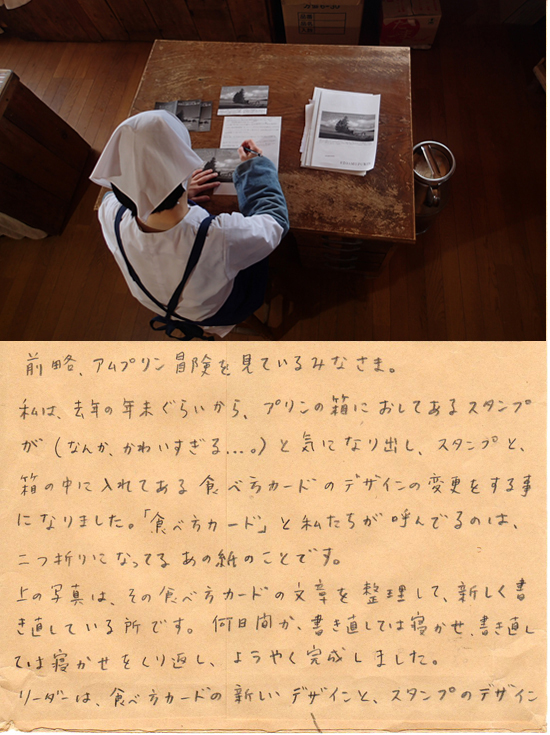 前略、アムプリン冒険を見ているみなさま。
私は、去年の年末ぐらいから、プリンの箱におしてあるスタンプ
が（なんか、かわいすぎる...。）と気になり出し、スタンプと、
箱の中に入れてある食べ方カードのデザインの変更をする事
になりました。「食べ方カード」と私たちが呼んでるのは、
二つ折りになってるあの紙のことです。
上の写真は、その食べ方カードの文章を整理して、新しく書
き直している所です。何日間か、書き直しては寝かせ、書き直し
ては寝かせをくり返し、ようやく完成しました。
リーダーは、食べ方カードの新しいデザインと、スタンプのデザイン